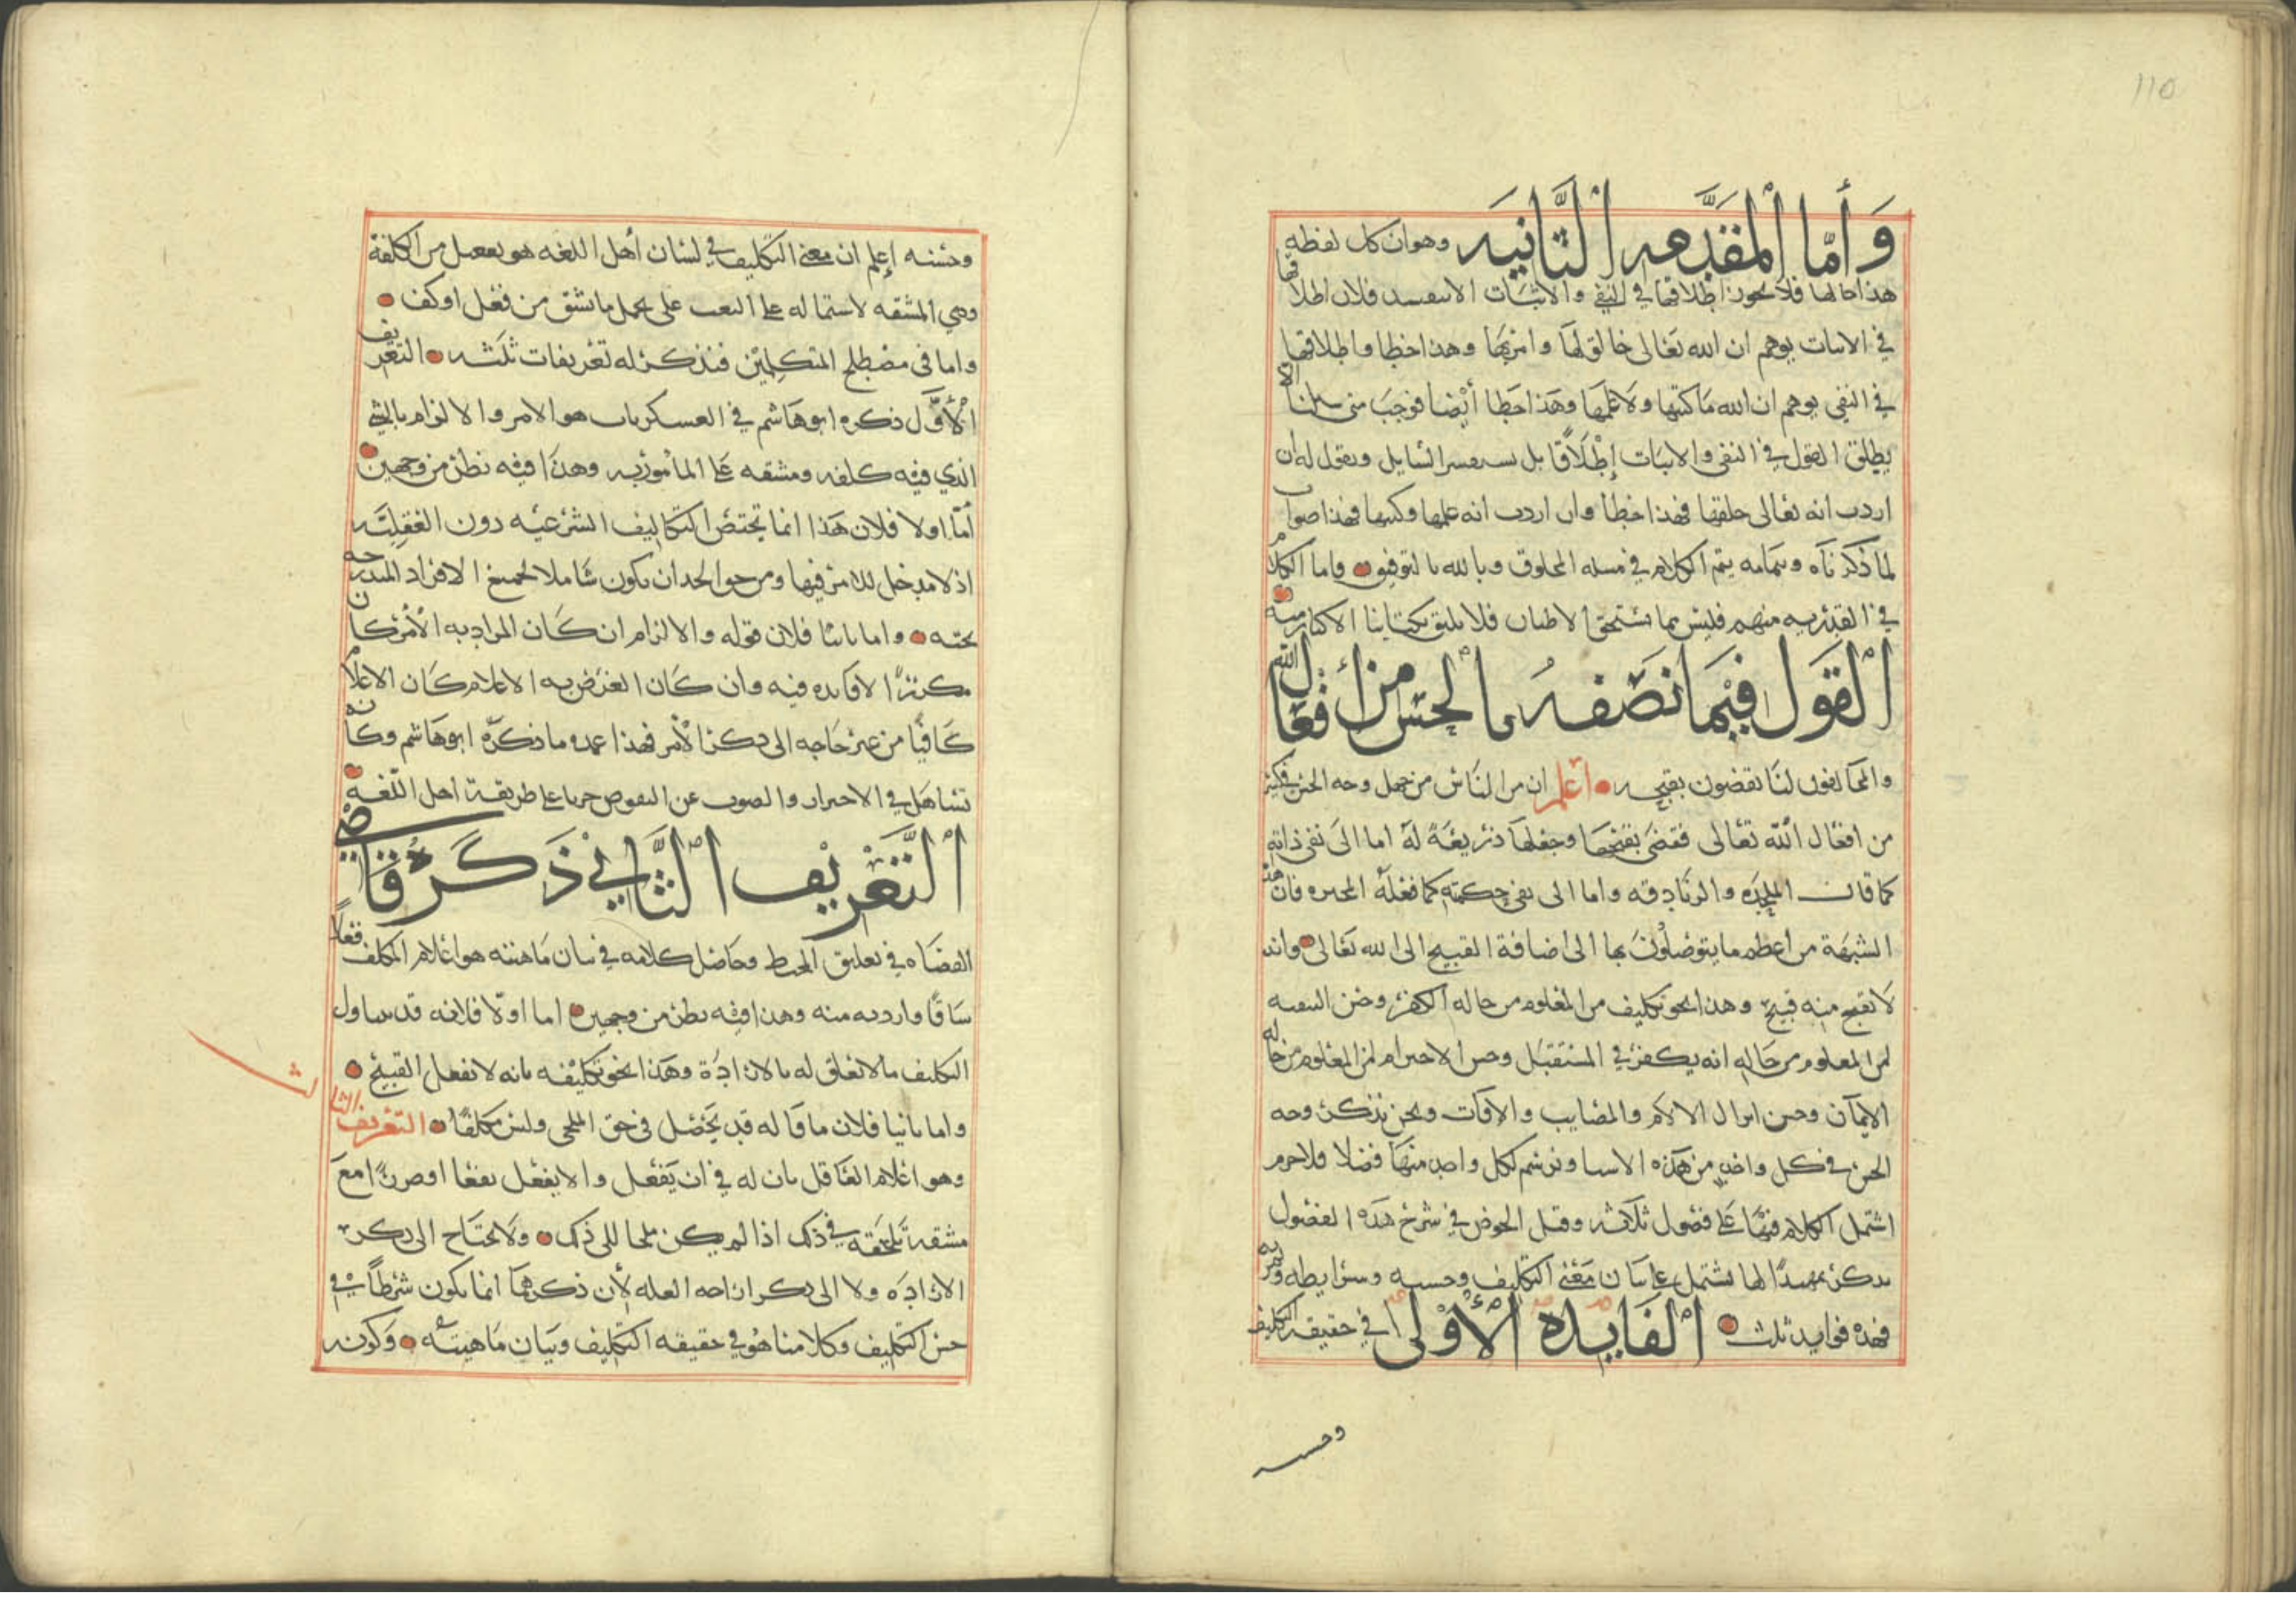 110
وَأمّا المقدَّمه الثَّانيَه وهو ان كل لفظه
هذا حالها فلا يجوز اطلاقها في النفي والاثبات الا بتقييد فلان اطلاقها
في الاثبات يوهم ان الله تعالى خالق لها وامر بها وهذا خطا واطلاقها
في النفي يوهم ان الله ما كتبها ولا علمها وهذا خطا أيضا فوجب متى سئلنا الا
يطلق القول في النفي والاثبات إطلاقا بل نستفسر السايل ونقول له ان
اردت انه تعالى خلقها فهذا خطأ وان اردت انه علمها وكتبها فهذا صواب
لما ذكرناه وبتمامه يتم الكلام في مسله المخلوق وبالله التوفيق واما الكلام
في القدريه منهم فليس مما يستحق الاطناب فلا يليق بكتابنا الاكثار منه
القول فيما نصفه بالحسن من أفعال الله
والمخالفون لنا يقضون بقبحه اعلم ان من الناس من جهل وجه الحسن في كثير
من افعال الله تعالى فقضى بقبحها وجعلها ذريعة له اما الى نفي ذاته
كما قالت الملحده والزنادقه واما الى نفي حكمته كما فعله المجبره فان هذه
الشبهة من اعظم ما يتوصلون بها الى اضافة القبيح الى الله تعالى وانه
لا يقبح منه قبيح وهذا نحو تكليف من المعلوم من حاله الكفر وحسن التبقيه
لمن المعلوم من حاله انه يكفر في المستقبل وحسن الاخترام لمن المعلوم من حاله
الايمان وحسن انزال الالام والمصايب والافات ونحن نذكر وجه
الحسن في كل واحد من هذه الاشيا ونرسم لكل واحد منها فصلا فلا جرم
اشتمل الكلام فيها على فصول ثلاثه وقبل الخوض في شرح هذه الفصول
نذكر تمهيدًا لها يشتمل على بيان معنى التكليف وحسنه وشرايطه
فهذه فوايد ثلث الفايده الأولى في حقيقه التكليف
وحسنه
وحسنه إعلم ان معنى التكليف في لسان أهل اللغه هو تفعيل من الكلفة
وهي المشقه لاشتماله على البعث على تحمل ما يشق من فعل او كف
واما في مصطلح المتكلمين فنذكر له تعريفات ثلثه التعريف
الأوَّل ذكره ابو هاشم في العسكريات هو الامر والالزام بالشي
الذي فيه كلفه ومشقه على المأمور به وهذا فيه نظر من وجهين
أمّا اولا فلان هذا انما يختص التكاليف الشرعيه دون العقليّه
اذ لا مدخل للامر فيها ومن حق الحد ان يكون شاملا لجميع الافراد المندرجه
تحته واما ثانيا فلان قوله والالزام ان كان المراد به الأمر كان
مكررًا لا فايده فيه وان كان الغرض به الاعلام كان الاعلام
كافيًا من غير حاجه الى ذكر الأمر فهذا عمده ما ذكره ابو هاشم وكأنه
تساهل في الاحتراز والصون عن النقوض جريا على طريقة اهل اللغه
التَّعريف الثَّاني ذكره قاضي
القضاه في تعليق المحيط وحاصل كلامه في بيان ماهيته هو اعلام المكلف فعلًا
شاقًا وارد به منه وهذا فيه نظر من وجهين اما اولا فلانه قد يتناول
التكليف ما لا تعلق له بالارادة وهذا نحو تكليفه بانه لا يفعل القبيح
واما ثانيا فلان ما قاله قد يحصل في حق الملجى وليس مكلفًا التعريف الثالث
وهو اعلام العاقل بان له في ان يَفعل والا يفعل نفعا او ضررًا مع
مشقة تلحقه في ذلك اذا لم يكن ملجا الى ذلك ولا يحتاج الى ذكر
الارادَه ولا الى ذكر ازاحه العله لأن ذكرهما انما يكون شرطًا في
حسن التكليف وكلامنا هو في حقيقه التكليف وبيان ماهيته وكونه